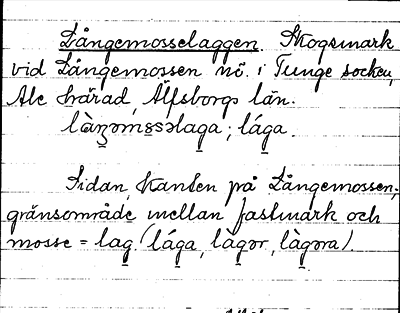 Långemosselaggen. Skogsmark
vid Långemossen nö. i Tunge socken,
Ale härad, Älfsborgs län.
làŋəms̲səlaga; lága.
Sidan, kanten på Långemossen;
gränsområde mellan fastmark och
mosse = lag (lága, làgər, làgəra).